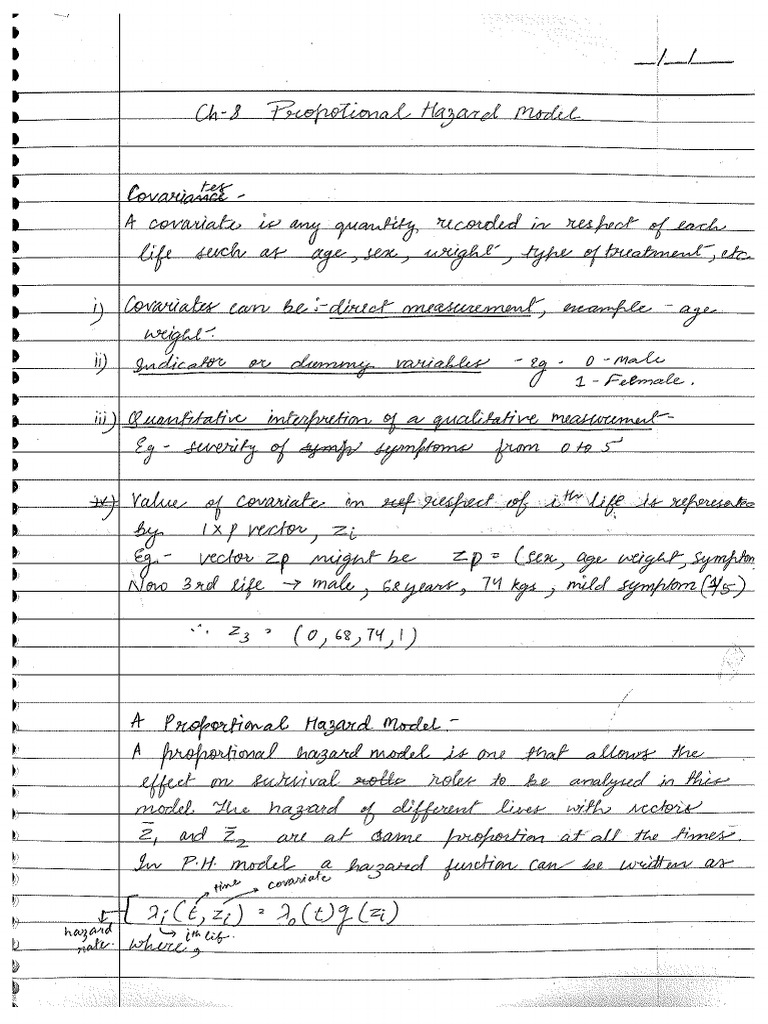 _/_/_
Ch-8 Propotional Hazard Model
Covariates -
A covariate is any quantity, recorded in respect of each
life such as age, sex, wright, type of treatment, etc
i) Covariates can be :- direct measurement, example - age
weight.
ii) Indicator or dummy variables - Eg - 0 - Male
1 - Felmale.
iii) Quantitative interpretion of a qualitative measurement -
Eg - severity of symp symptoms from 0 to 5
iv) Value of covariate in ref respect of ith life is represente
by 1×p vector, zi
Eg - vector zp might be zp = (sex, age weight, symptom
Now 3rd life → male, 68 years, 74 kgs, mild symptom (1/5)
∴ z3 = (0, 68, 74, 1)
A Proportional Hazard Model -
A proportional hazard model is one that allows the
effect on survival roles to be analysed in this
model. The hazard of different lives with vectors
z̄1 and z̄2 are at same proportion at all the times.
In P.H. model a hazard function can be written as
time covariate
λi(t, zi) = λ0(t) g(zi)
hazard rate. ith life.
where,